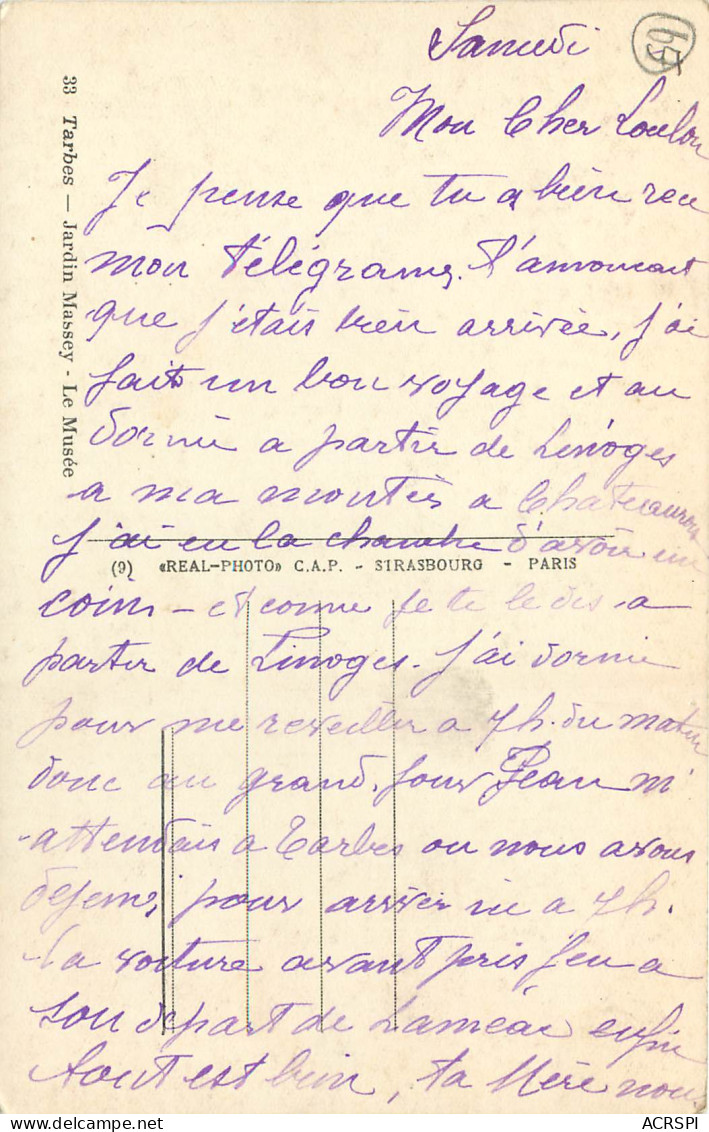 65
Samedi
Mon Cher Loulou
Je pense que tu a bien reu
mon télégrame. t'anoncant
que j'étais bien arrivée, j'ai
fait un bon voyage et au
dormie a partir de Limoges
a ma montés a Chateauroux
j'ai eu la chanche d'avoir un
coin – et comme je te le dis a
partir de Limoges. j'ai dormie
pour me reveiller a 7h. du matin
donc au grand. jour Jean m'
attendais a Tarbes ou nous avons
dejeiné, pour arriver ici a 7h.
la voiture avant pris feu a
son départ de Laméac enfin
tout est bien, ta Mère nous
33 Tarbes — Jardin Massey - Le Musée
(9) «REAL-PHOTO» C.A.P. - STRASBOURG - PARIS
ACRSPI